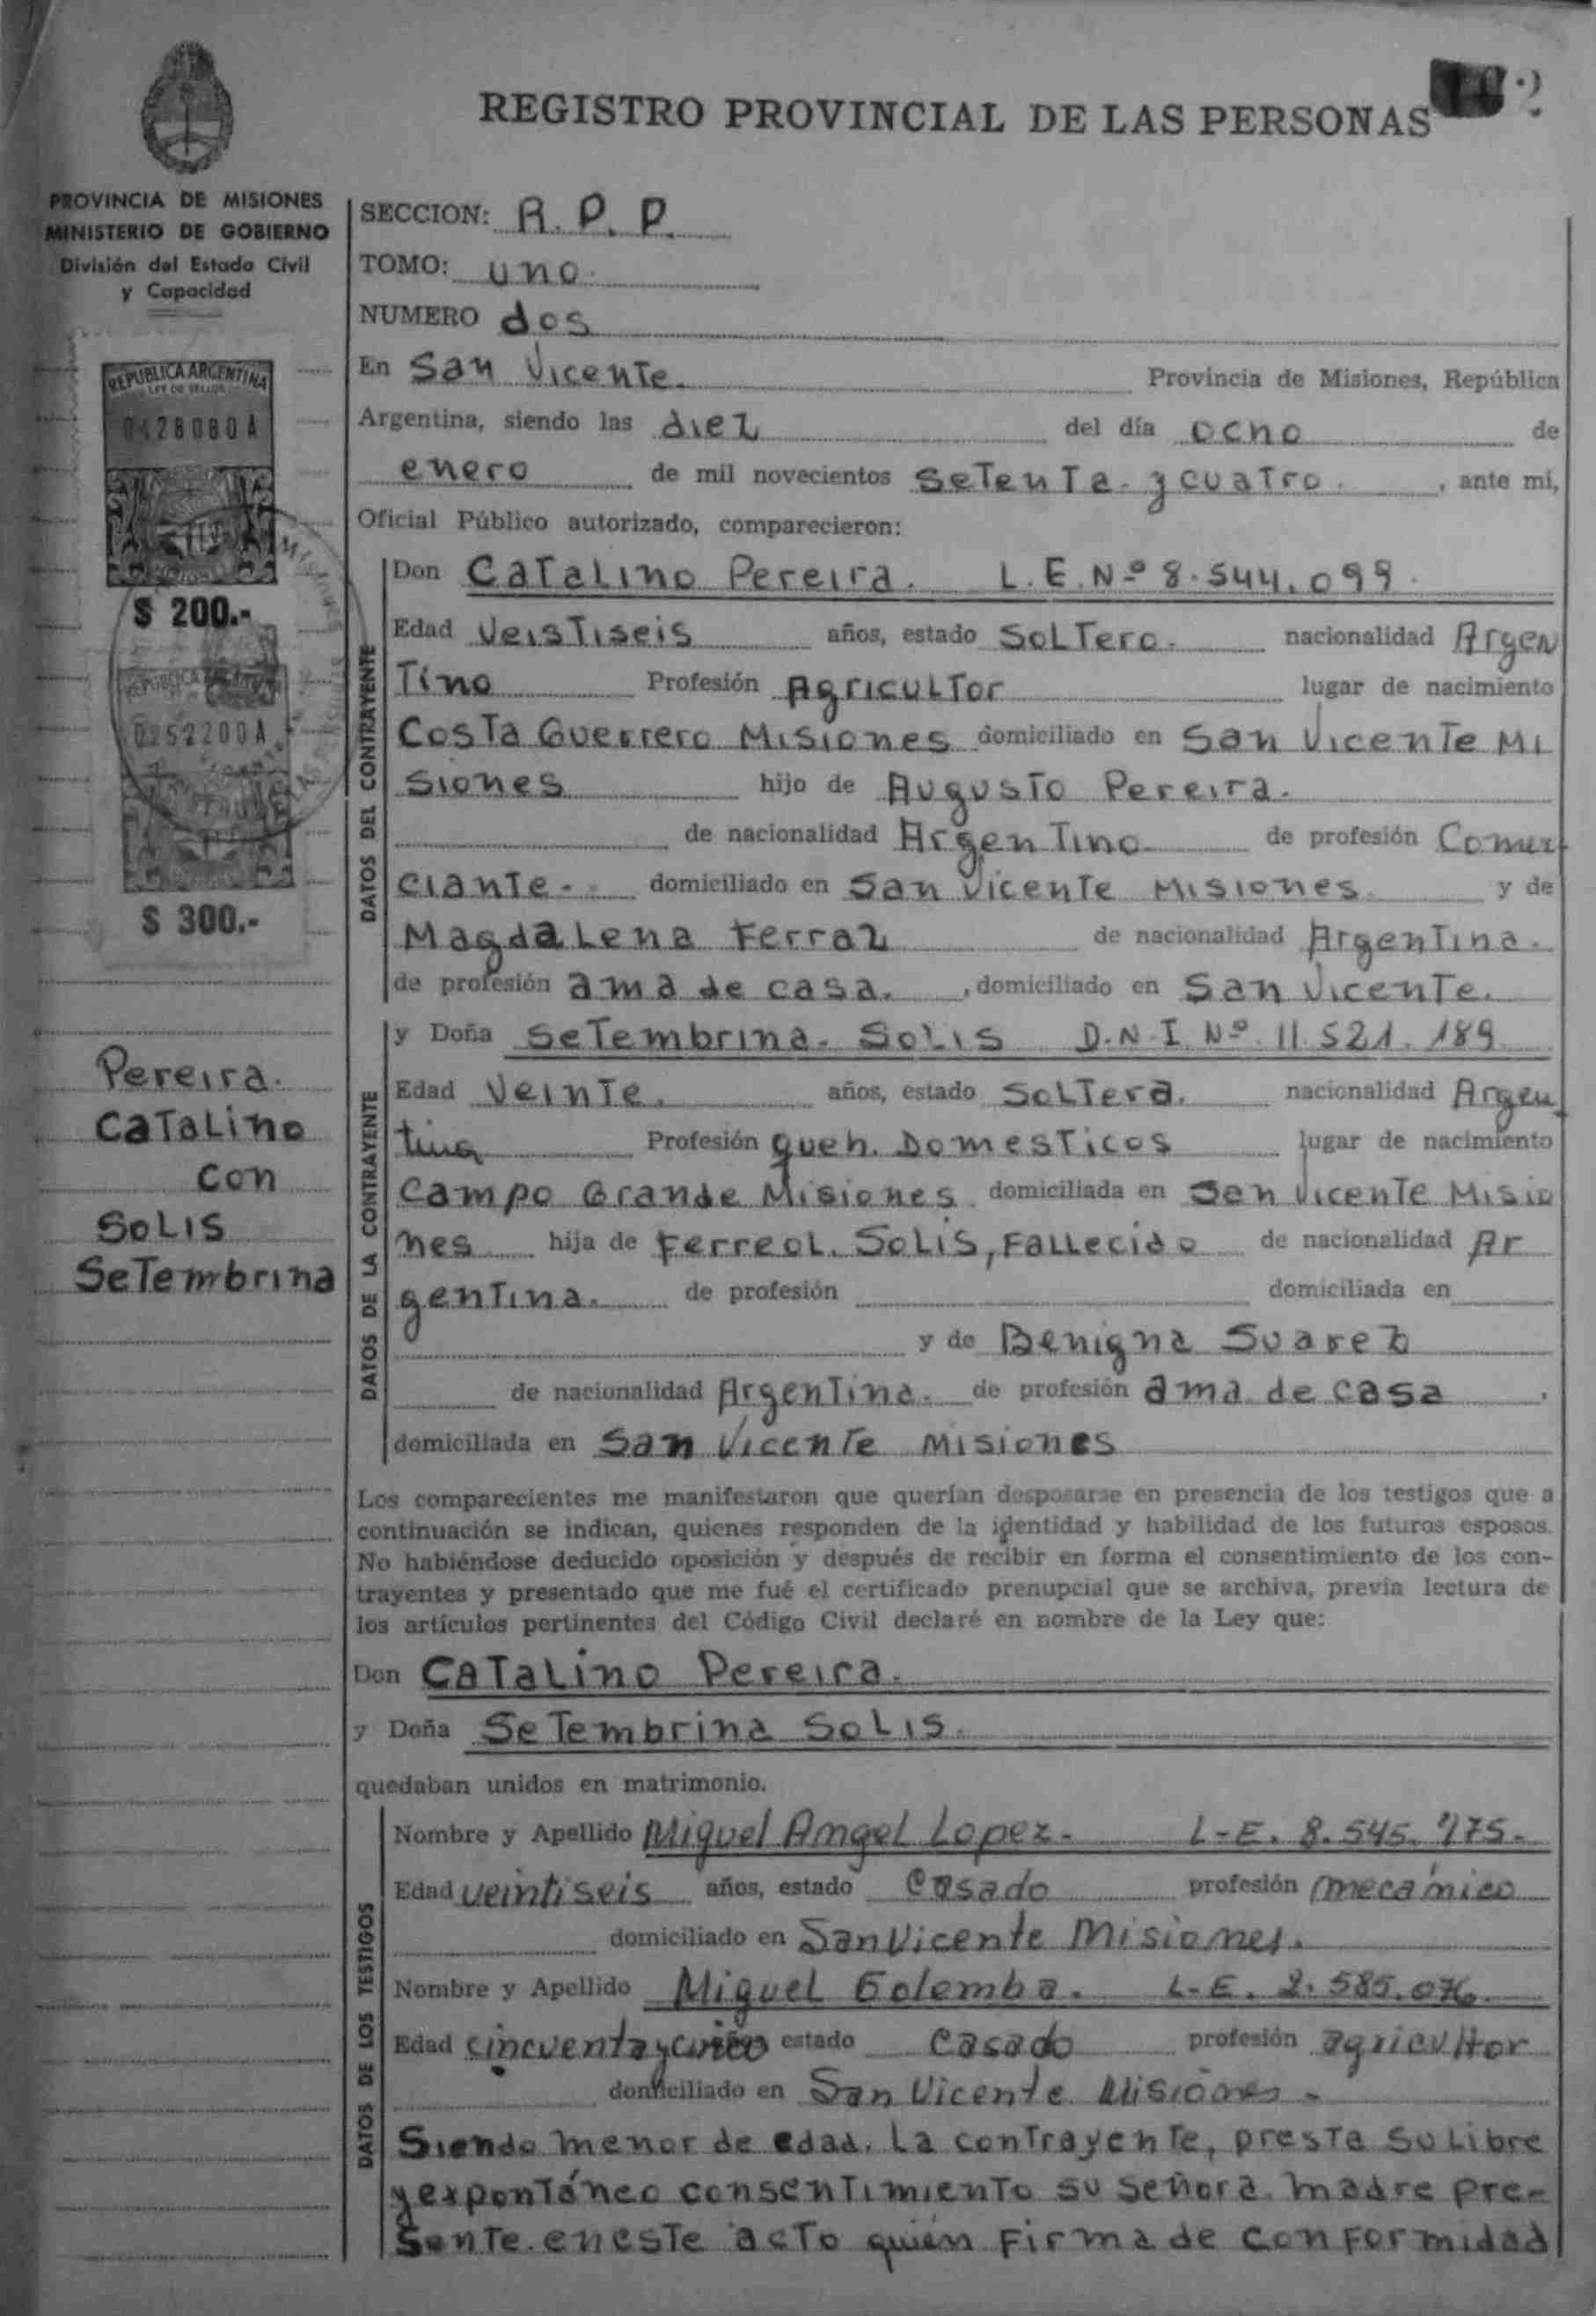 REGISTRO PROVINCIAL DE LAS PERSONAS
PROVINCIA DE MISIONES
MINISTERIO DE GOBIERNO
División del Estado Civil
y Capacidad
REPUBLICA ARGENTINA
LEY DE SELLOS
0428080A
$ 200.-
0252200A
$ 300.-
Pereira.
Catalino
con
Solis
Setembrina
SECCION: R. P. P.
TOMO: uno.
NUMERO dos
En San Vicente. Provincia de Misiones, República
Argentina, siendo las diez del día ocho de
enero de mil novecientos setenta y cuatro. , ante mi,
Oficial Público autorizado, comparecieron:
DATOS DEL CONTRAYENTE
Don Catalino Pereira. L.E.Nº 8.544.099.
Edad Veistiseis años, estado Soltero. nacionalidad Argen
tino Profesión Agricultor lugar de nacimiento
Costa Guerrero Misiones domiciliado en San Vicente Mi
siones hijo de Augusto Pereira.
de nacionalidad Argentino de profesión Comer
ciante. domiciliado en San Vicente Misiones. y de
Magdalena Ferraz de nacionalidad Argentina.
de profesión ama de casa. , domiciliado en San Vicente.
DATOS DE LA CONTRAYENTE
y Doña Setembrina. Solis D.N.I. Nº 11.521.189
Edad Veinte. años, estado Soltera. nacionalidad Argen
tina Profesión queh. Domesticos lugar de nacimiento
Campo Grande Misiones domiciliada en San Vicente Misio
nes hija de Ferreol. Solis, Fallecido de nacionalidad Ar
gentina. de profesión domiciliada en
y de Benigna Suarez
de nacionalidad Argentina. de profesión ama de casa ,
domiciliada en San Vicente Misiones
Los comparecientes me manifestaron que querían desposarse en presencia de los testigos que a
continuación se indican, quienes responden de la identidad y habilidad de los futuros esposos.
No habiéndose deducido oposición y después de recibir en forma el consentimiento de los con-
trayentes y presentado que me fué el certificado prenupcial que se archiva, previa lectura de
los artículos pertinentes del Código Civil declaré en nombre de la Ley que:
Don Catalino Pereira.
y Doña Setembrina Solis.
quedaban unidos en matrimonio.
DATOS DE LOS TESTIGOS
Nombre y Apellido Miguel Angel Lopez. L-E. 8.545.175.
Edad veintiseis años, estado Casado profesión mecánico
domiciliado en San Vicente Misiones.
Nombre y Apellido Miguel Golemba. L-E. 2.585.076.
Edad cincuenta y cinco estado casado profesión agricultor
domiciliado en San Vicente Misiones -
Siendo menor de edad. La contrayente, presta su libre
y expontáneo consentimiento su señora madre pre-
sente en este acto quien firma de conformidad